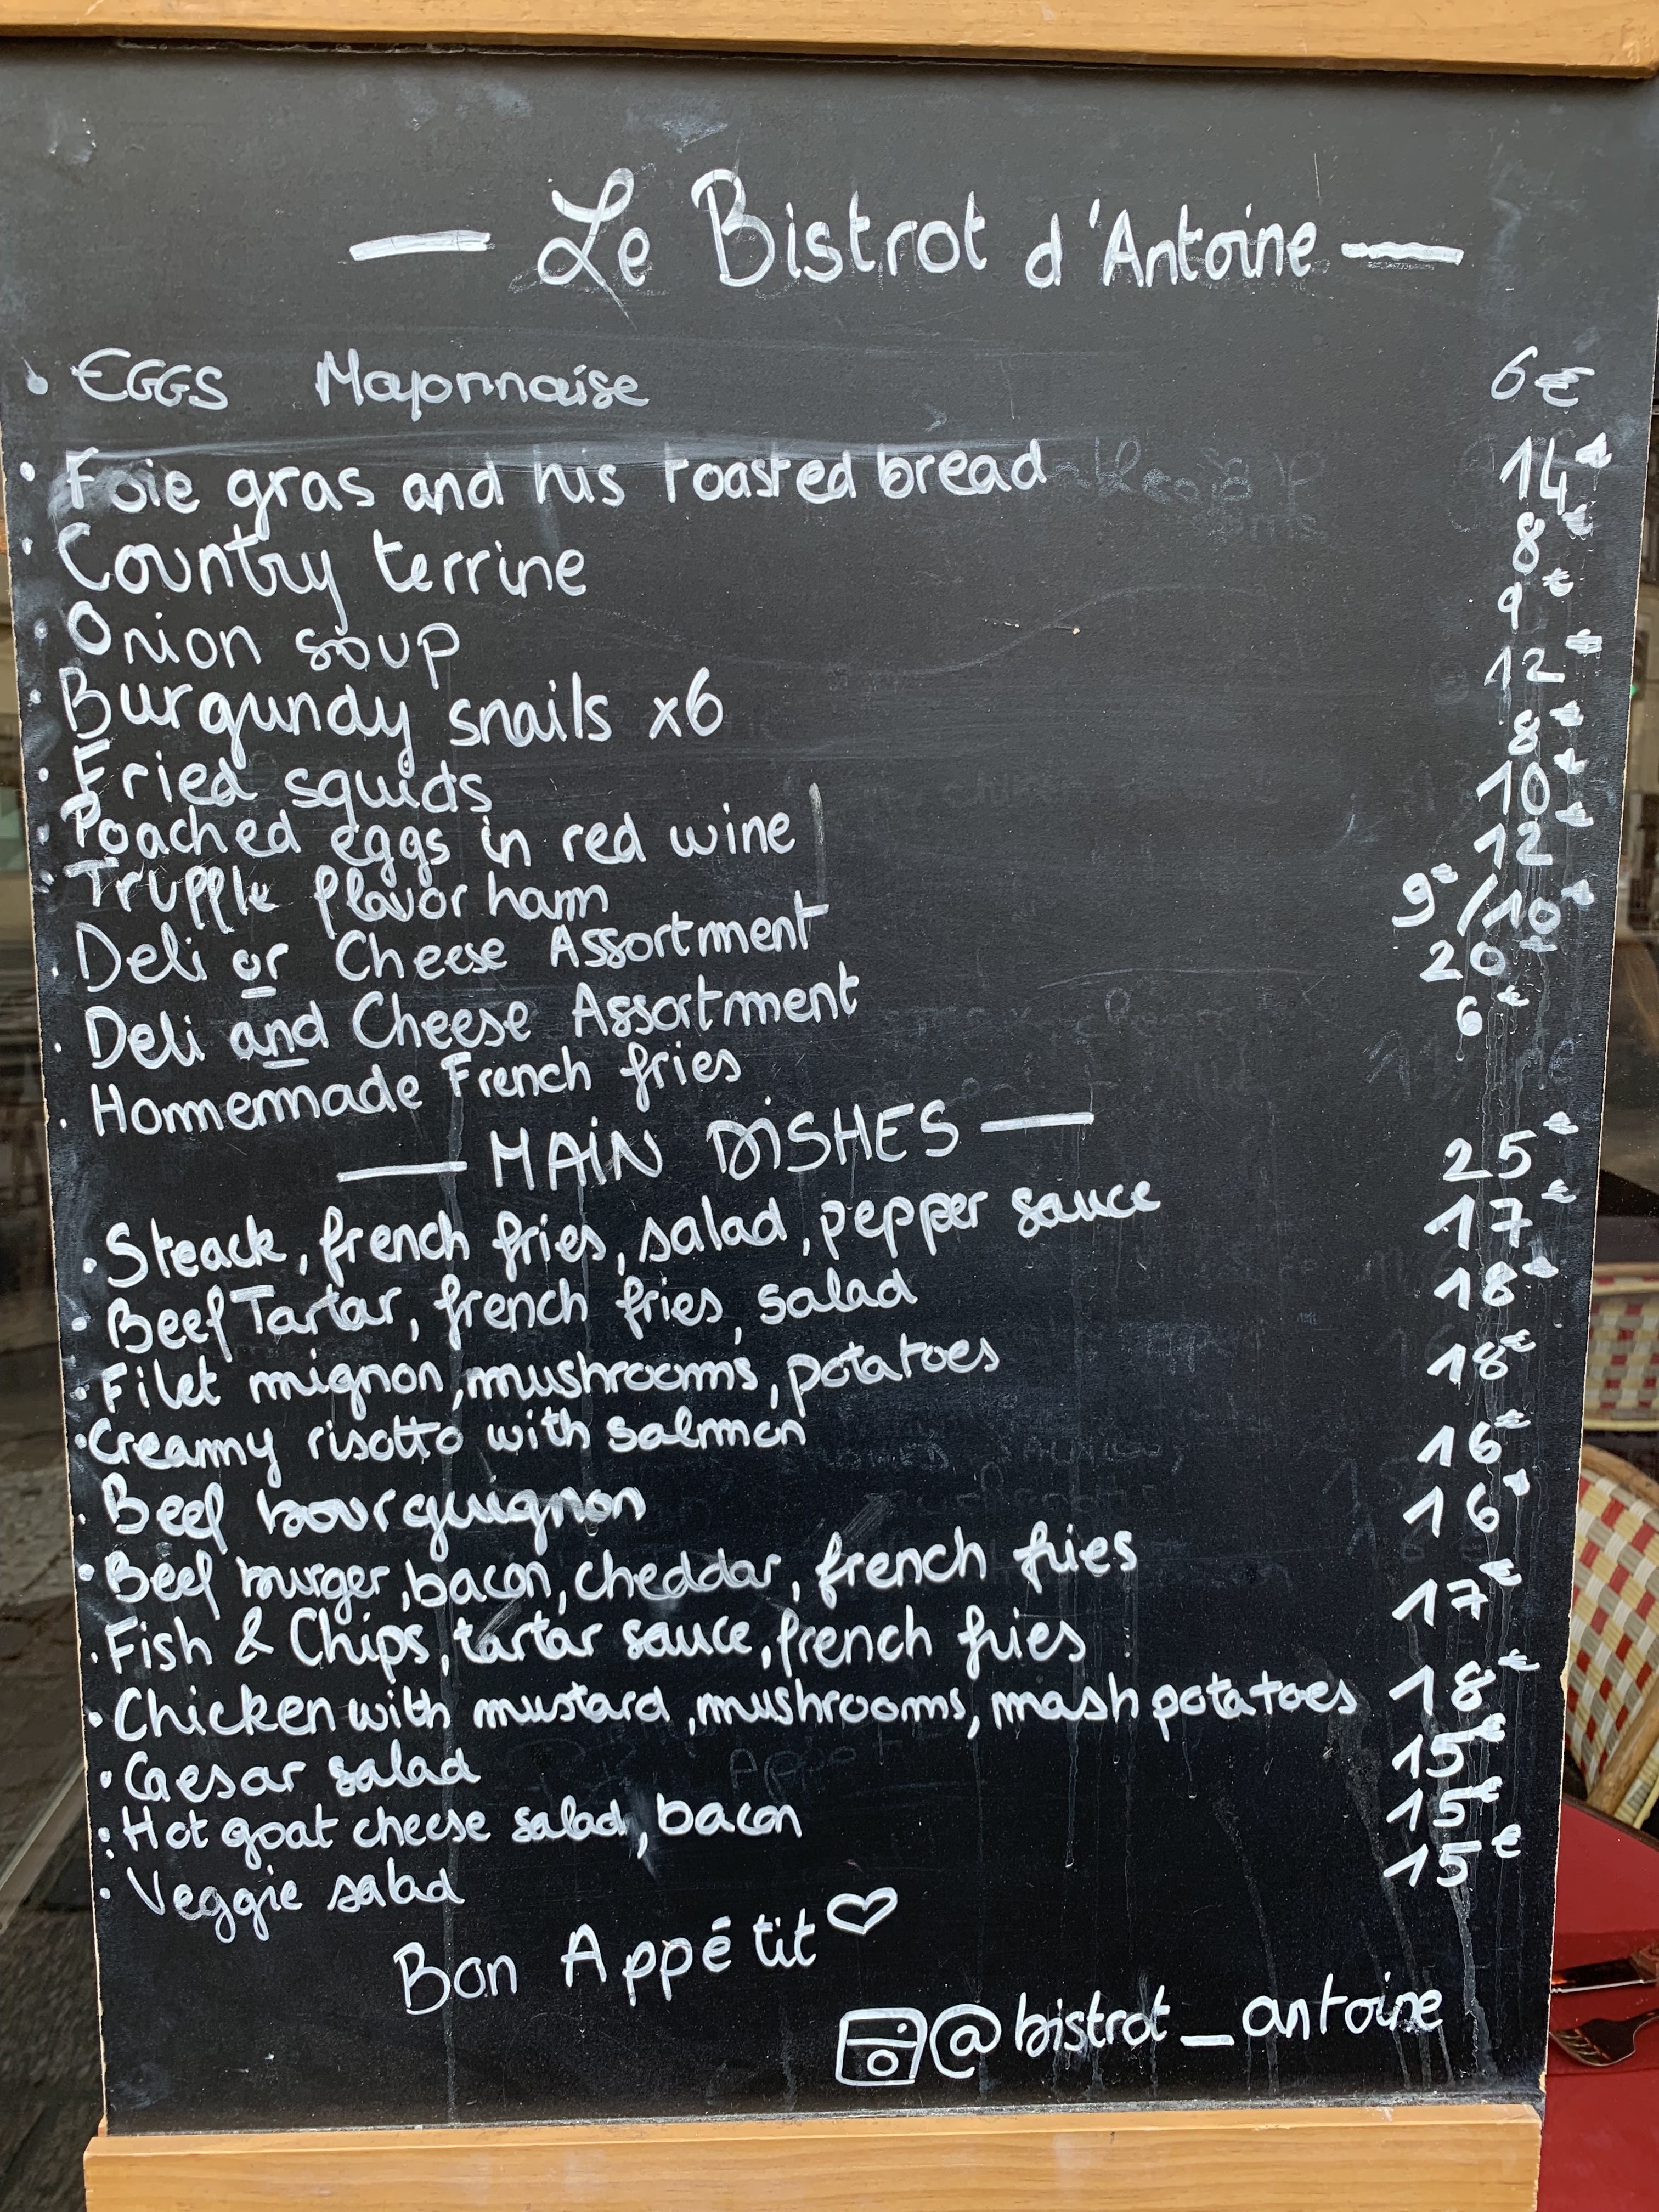 — Le Bistrot d'Antoine —
• EGGS Mayonnaise 6€
• Foie gras and his toasted bread 14€
• Country terrine 8€
• Onion soup 9€
• Burgundy snails x6 12€
• Fried squids 8€
• Poached eggs in red wine 10€
• Truffle flavor ham 12€
• Deli or Cheese Assortment 9€/10€
• Deli and Cheese Assortment 20€
• Homemade French fries 6€
— MAIN DISHES —
• Steack, french fries, salad, pepper sauce 25€
• Beef Tartar, french fries, salad 17€
• Filet mignon, mushrooms, potatoes 18€
• Creamy risotto with salmon 18€
• Beef bourguignon 16€
• Beef burger, bacon, cheddar, french fries 16€
• Fish & Chips, tartar sauce, french fries 17€
• Chicken with mustard, mushrooms, mash potatoes 18€
• Caesar salad 15€
• Hot goat cheese salad, bacon 15€
• Veggie salad 15€
Bon Appétit ♡
@bistrot_antoine